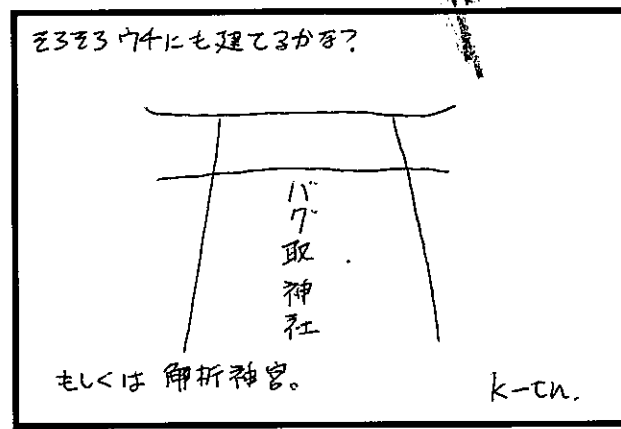 そろそろウチにも建てるかな?
バグ取神社
もしくは 解析神宮。
k-ch.